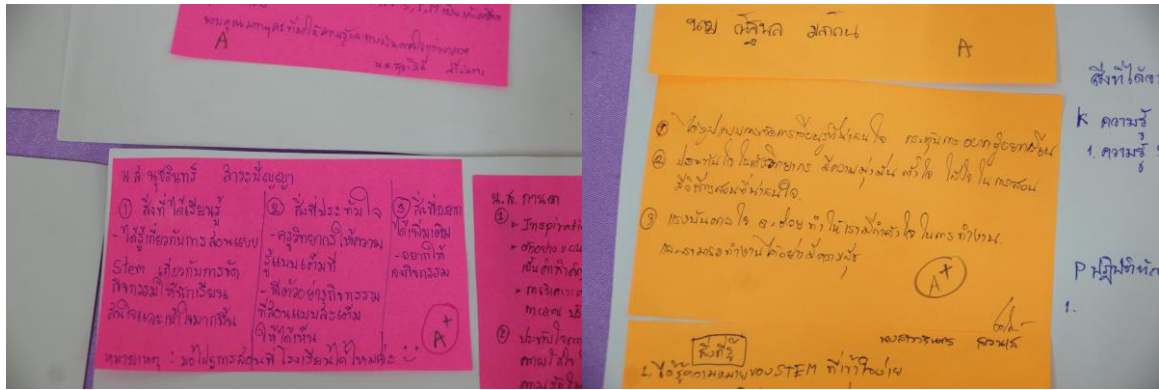 ขอบคุณ
A
น.ส. นุชรินทร์ สาระปัญญา
① สิ่งที่ได้เรียนรู้
- ได้รู้เกี่ยวกับการสอนแบบ
Stem เกี่ยวกับการจัด
กิจกรรมให้นักเรียน
สนใจและเข้าใจมากขึ้น
② สิ่งที่ประทับใจ
- ครูวิทยากรให้ความ
รู้แบบเต็มที่
- มีตัวอย่างกิจกรรม
ที่สอนแบบสะเต็ม
ให้ได้เห็น
③ สิ่งที่อยาก
ได้เพิ่มเติม
- อยากให้
ลงกิจกรรม
A+
หมายเหตุ : ขอไปดูการสอนที่โรงเรียนได้ไหมค่ะ
น.ส. กานดา
① - Inspirati
②
นาย มล
A
① ได้รูปแบบการจัดการเรียนรู้ที่น่าสนใจ กระตุ้นการอยากรู้อยากเรียน
② ประทับใจในตัววิทยากร มีความมุ่งมั่น ตั้งใจ ใส่ใจ ในการสอน
มีวิธีการสอนที่น่าสนใจ.
③ แรงบันดาลใจ จะช่วยทำให้เรามีกำลังใจในการทำงาน.
และสามารถทำงานได้อย่างมีความสุข
A+
สิ่งที่รู้
1. ได้รู้ความหมายของ STEM ที่เข้าใจง่าย
สิ่งที่ได้จา
K ความรู้
1. ความรู้
P ปฏิบัติ
1.